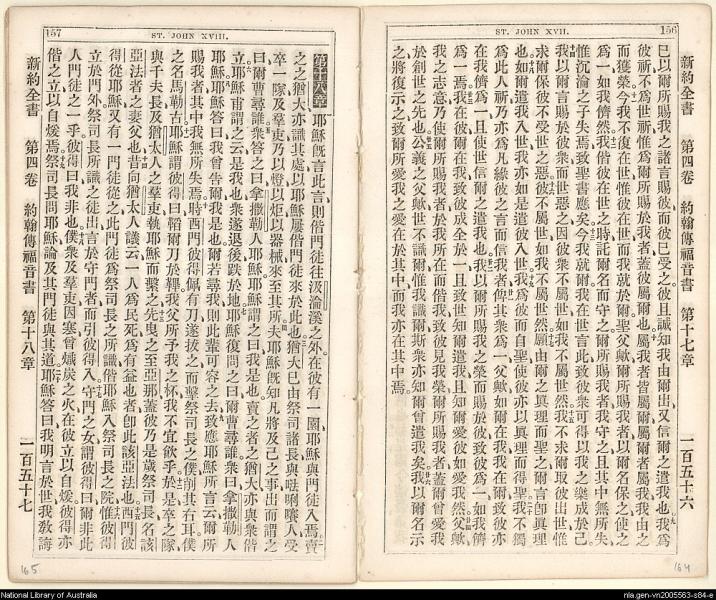 156
ST. JOHN XVII.
新約全書 第四卷 約翰傳福音書 第十七章 一百五十六
巳以爾所賜我之諸言賜彼而彼巳受之彼且誠知我由爾出又信爾之遣我也我爲
彼祈不爲世祈惟爲爾所賜我者蓋彼屬爾也屬我者皆屬爾屬爾者屬我我由之
而獲榮今我不復在世惟彼在世而我就於爾聖父歟爾所賜我者以爾名保之使之
爲一如我儕然我偕彼在世之時託爾名而守之爾所賜我者我守之且其中無所失
惟沉淪之子失焉致聖書應矣今我就爾我在世言此致彼衆可得以我之樂成於己
我以爾言賜於彼衆而世惡之因彼衆不屬世如我不屬世然我不求爾取彼出世惟
求爾保彼不受世之惡彼不屬世如我不屬世然願由爾之眞理而聖之爾言卽眞理
也如爾遣我入世我亦如是遣彼入世我爲彼而自聖使彼亦以眞理而得聖我不獨
爲此人祈乃亦爲凡緣彼之言而信我者俾其衆爲一父歟如爾在我我在爾致彼亦
在我儕爲一且使世信爾之遣我也我以爾所賜我之榮而賜於彼致彼爲一如我儕
爲一焉我在彼爾在我致彼成全於一且致世知爾遣我且知爾愛彼如愛我然父歟
我之志意乃使爾所賜我者於我所在而偕我致彼見我榮爾所賜我者蓋爾曾愛我
於創世之先也公義之父歟世不識爾惟我識爾斯衆亦知爾曾遣我矣我以爾名示
之將復示之致爾所愛我之愛在於其中而我亦在其中焉
164
157
ST. JOHN XVIII.
第十八章 耶穌既言此言則偕門徒往汲淪溪之外在彼有一園耶穌與門徒入焉賣
之之猶大亦識其處以耶穌屢偕門徒來於此也猶大巳由祭司諸長與唎人受
卒一隊及羣吏乃以燈以炬以器械來至其所夫耶穌既知凡將及己之事出而謂之
曰爾曹尋誰衆答之曰拿撒勒人耶穌耶穌謂之曰我是也賣之者之猶大亦與衆偕
立耶穌甫謂之云是我也衆遂退後跌於地耶穌復問之曰爾曹尋誰衆曰拿撒勒人
耶穌耶穌答曰我曾告爾我是也爾若尋我則此輩可容之去致應耶穌所言云爾所
賜我者其中我無所失焉時西門彼得佩有刀遂拔之而擊祭司長之僕削其右耳僕
之名馬勒古耶穌謂彼得曰韜爾刀於鞞我父所予我之杯我不宜飲乎於是卒之隊
與千夫長及猶太人之羣吏執耶穌而繫之先曳之至亞那蓋彼乃是歲祭司長名該
亞法者之妻父也昔向猶太人議云一人爲民死爲有益也者卽此該亞法也西門彼
得從耶穌又有一門徒從之此門徒爲祭司長之所識偕耶穌入祭司長之院惟彼得
立於門外祭司長所識之徒出言於守門者而引彼得入守門之女謂彼得曰爾非此
人門徒之一乎彼得曰我非也僕衆及羣吏因寒曾熾炭之火在彼立以自煖彼得亦
偕之立以自煖焉祭司長問耶穌論及其門徒與其道耶穌答曰我明言於世我敎誨
新約全書 第四卷 約翰傳福音書 第十八章 一百五十七
165
National Library of Australia
nla.gen-vn2005563-s84-e